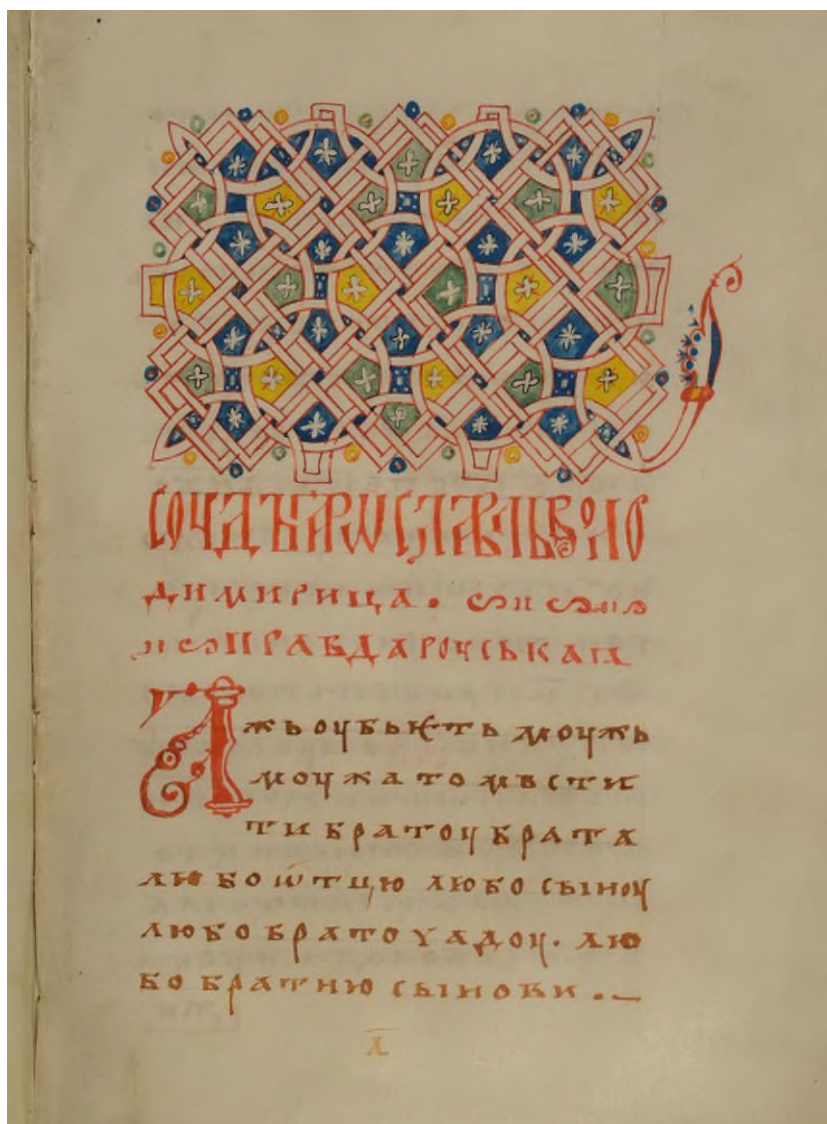 СОУДЪ ꙖРОСЛАВЛЬ ВОЛО
ДИМИРИЦА.
ПРАВДА РОУСЬКАꙖ
Ажь оубьѥть моужь
моужа то мьсти
ти братоу брата
любо ѡтцю любо сыноу
любо братоучадоу. лю
бо братню сынови.